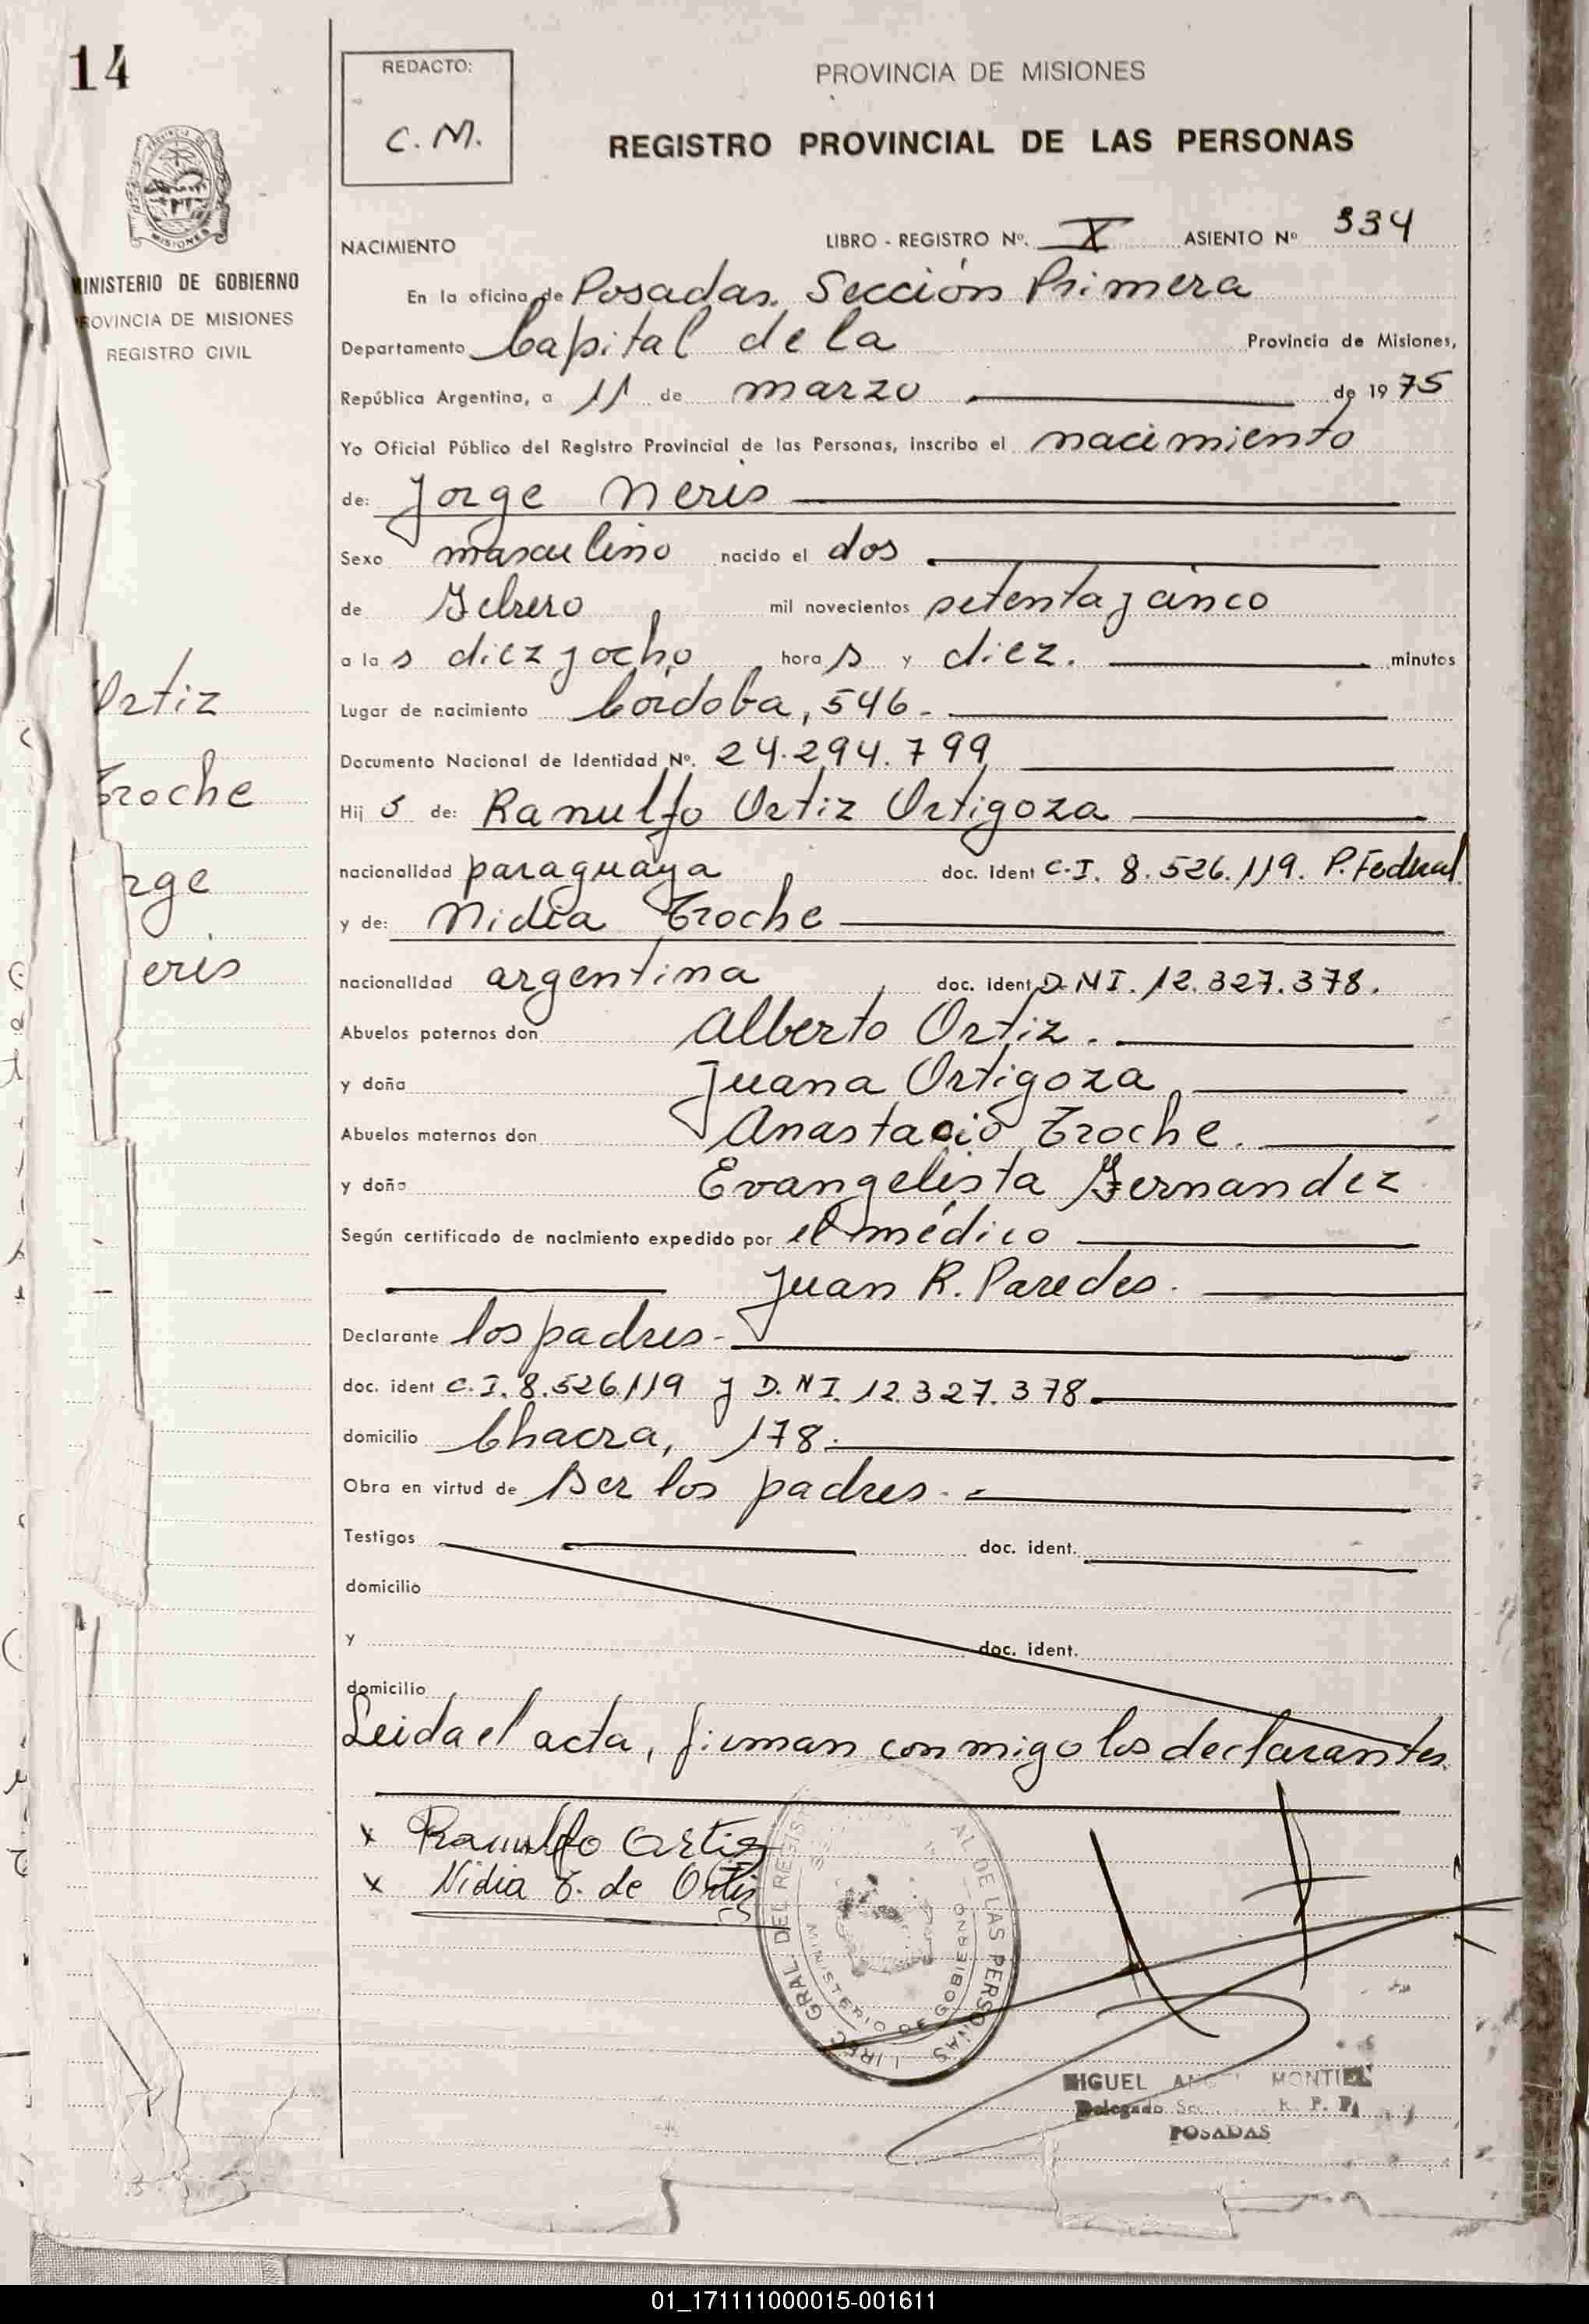 14
REDACTO:
C. M.
PROVINCIA DE MISIONES
REGISTRO PROVINCIAL DE LAS PERSONAS
MISIONES
MINISTERIO DE GOBIERNO
PROVINCIA DE MISIONES
REGISTRO CIVIL
NACIMIENTO LIBRO - REGISTRO Nº. X ASIENTO Nº 334
En la oficina de Posadas. Sección Primera
Departamento Capital de la Provincia de Misiones,
República Argentina, a 11 de marzo de 1975
Yo Oficial Público del Registro Provincial de las Personas, inscribo el nacimiento
de: Jorge Neris
Sexo masculino nacido el dos
de Febrero mil novecientos setenta y cinco
a las diez y ocho horas y diez. minutos
Ortiz
Lugar de nacimiento Córdoba, 546.-
Documento Nacional de Identidad Nº. 24.294.799
Troche
Hijo de: Ranulfo Ortiz Ortigoza
rge
nacionalidad paraguaya doc. ident C.I. 8.526.119. P. Federal
y de: Nidia Troche
eris
nacionalidad argentina doc. ident D.N I. 12.327.378.
Abuelos paternos don Alberto Ortiz.
y doña Juana Ortigoza
Abuelos maternos don Anastacio Troche.
y doña Evangelista Fernandez
Según certificado de nacimiento expedido por el médico
Juan R. Paredes.
Declarante los padres-
doc. ident C.I. 8.526.119 y D.N I. 12.327.378
domicilio Chacra, 178.
Obra en virtud de ser los padres.-
Testigos doc. ident.
domicilio
y doc. ident.
domicilio
Leida el acta, firman conmigo los declarantes.
x Ranulfo Ortiz
x Nidia T. de Ortiz
DIREC. GRAL. DEL REGISTRO AL DE LAS PERSONAS
MINISTERIO DE GOBIERNO
MIGUEL ANG MONTIEL
Delegado Sec R. P. P.
POSADAS
01_171111000015-001611